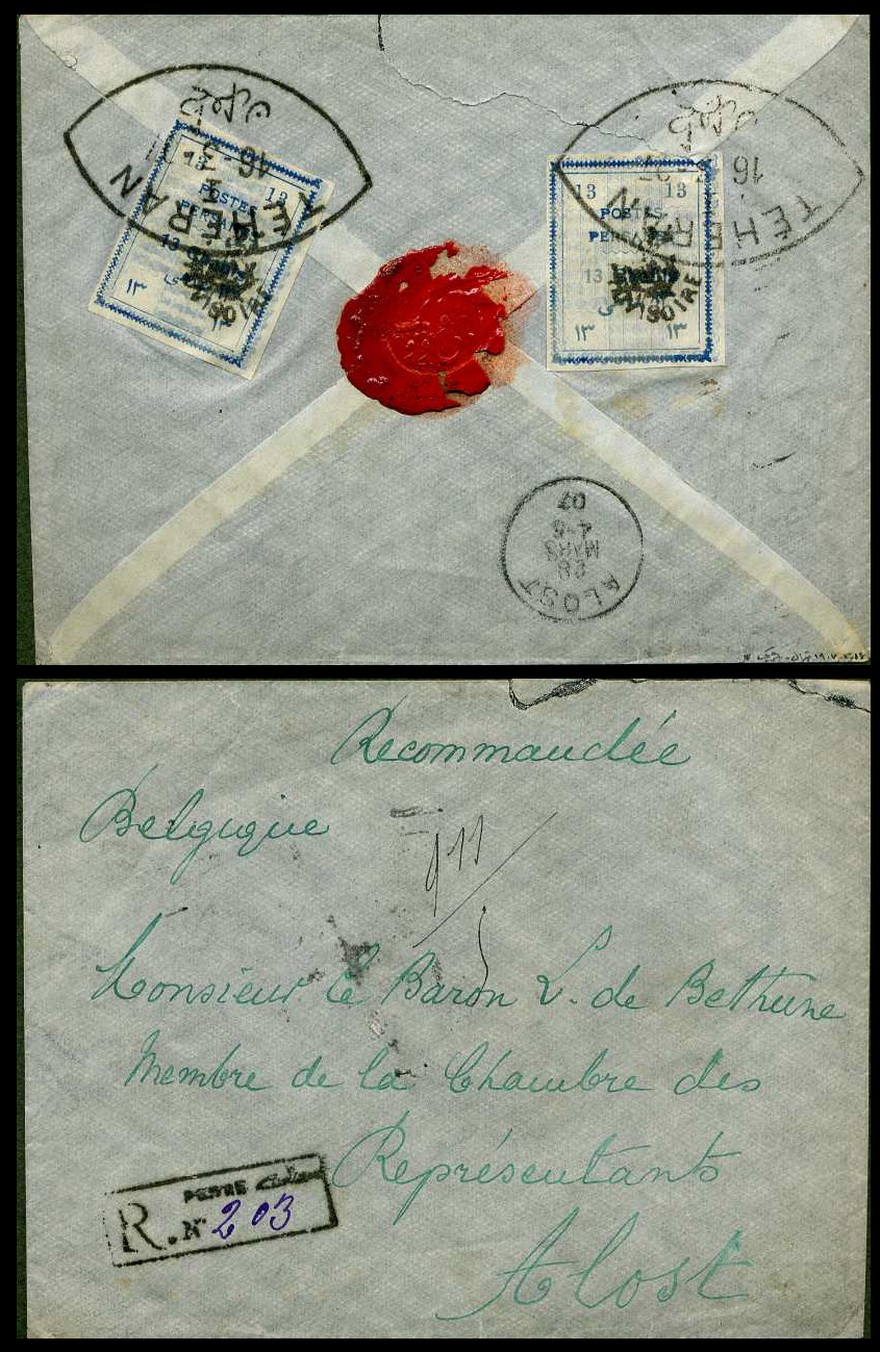 طهران
16-3-07
TEHERAN
13 13
POSTES
PERSANES
13
PROVISOIRE
۱۳ ۱۳
طهران
16 07
TEHERAN
13 13
POSTES
13
PROVISOIRE
۱۳ ۱۳
ALOST
28
MARS
4-5
07
Recommandée
Belgique
911
Monsieur le Baron L. de Bethune
Membre de la Chambre des
Représentants
Alost
PERSE
R. N° 203